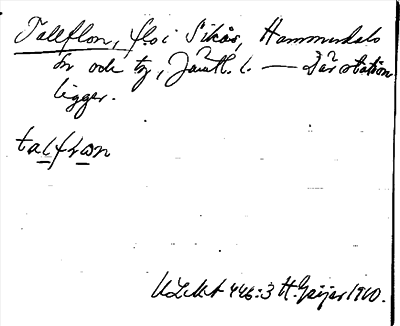 Tallflon, flo i Sikås, Hammerdals
sn och tg, Jämtl. l. — Där station
ligger.
talflɷn
ULMA 446:3 H. Geijer 1910.